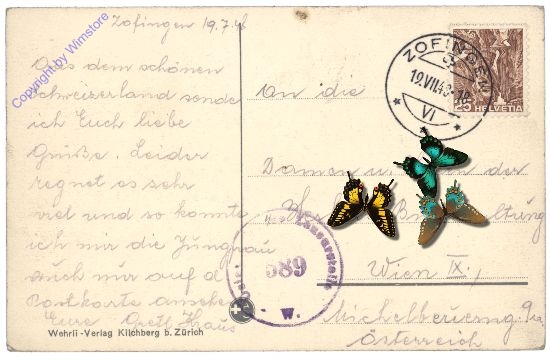 Zofingen 19.7.48
Aus dem schönen
Schweizerland sende
ich Euch liebe
Grüße. Leider
regnet es sehr
viel und so konnte
ich mir die Jungfrau
auch nur auf d
Postkarte ansehen
Eure Gretl Haus
Wehrli-Verlag Kilchberg b. Zürich
Copyright by Wimstore
ZOFINGEN
19.VII.48
VI
25 HELVETIA
An die
Damen u. der
Wien IX,
9a
Österreich
Zensurstelle
589
W.